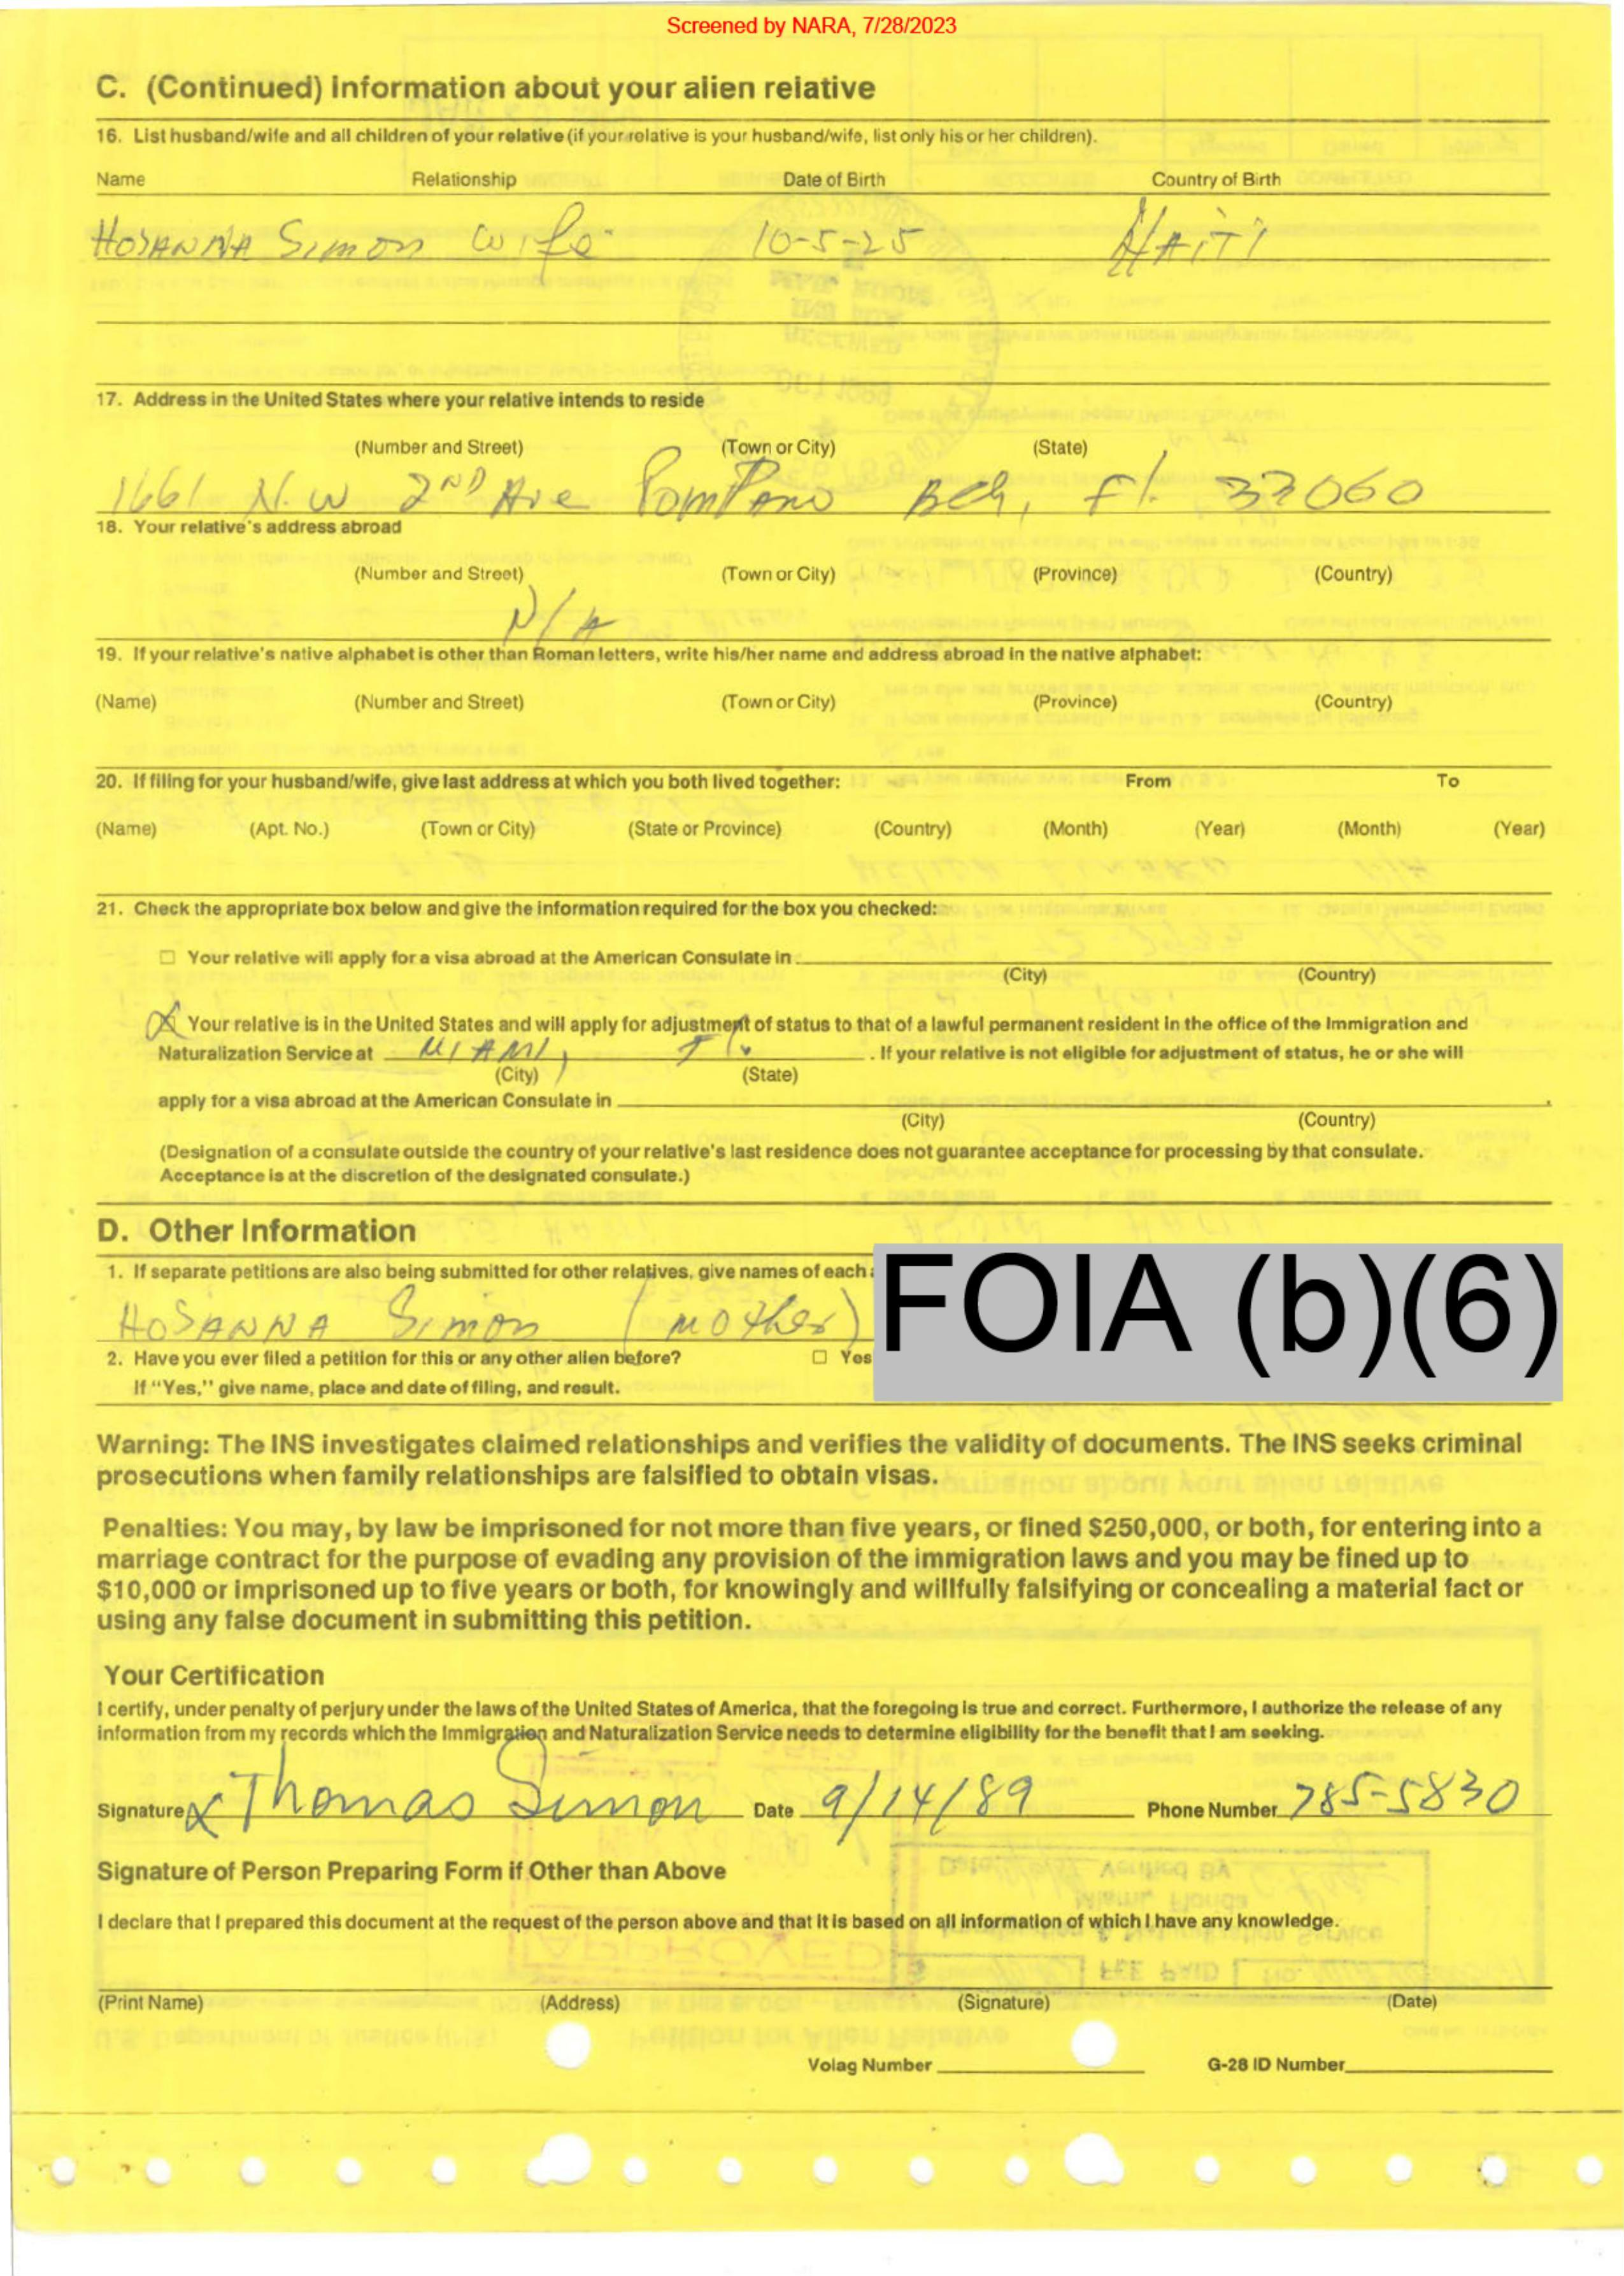 Screened by NARA, 7/28/2023
C. (Continued) Information about your alien relative
16. List husband/wife and all children of your relative (if your relative is your husband/wife, list only his or her children).
Name Relationship Date of Birth Country of Birth
HOSANNA Simon wife 10-5-25 HAITI
17. Address in the United States where your relative intends to reside
(Number and Street) (Town or City) (State)
1661 N.W 2ND Ave PomPano Bch, Fl. 33060
18. Your relative's address abroad
(Number and Street) (Town or City) (Province) (Country)
N/A
19. If your relative's native alphabet is other than Roman letters, write his/her name and address abroad in the native alphabet:
(Name) (Number and Street) (Town or City) (Province) (Country)
20. If filing for your husband/wife, give last address at which you both lived together: From To
(Name) (Apt. No.) (Town or City) (State or Province) (Country) (Month) (Year) (Month) (Year)
21. Check the appropriate box below and give the information required for the box you checked:
☐ Your relative will apply for a visa abroad at the American Consulate in
(City) (Country)
X Your relative is in the United States and will apply for adjustment of status to that of a lawful permanent resident in the office of the Immigration and
Naturalization Service at MIAMI, Fl. . If your relative is not eligible for adjustment of status, he or she will
(City) (State)
apply for a visa abroad at the American Consulate in .
(City) (Country)
(Designation of a consulate outside the country of your relative's last residence does not guarantee acceptance for processing by that consulate.
Acceptance is at the discretion of the designated consulate.)
D. Other Information
1. If separate petitions are also being submitted for other relatives, give names of each
FOIA (b)(6)
HOSANNA Simon (mother)
2. Have you ever filed a petition for this or any other alien before? ☐ Yes
If "Yes," give name, place and date of filing, and result.
Warning: The INS investigates claimed relationships and verifies the validity of documents. The INS seeks criminal
prosecutions when family relationships are falsified to obtain visas.
Penalties: You may, by law be imprisoned for not more than five years, or fined $250,000, or both, for entering into a
marriage contract for the purpose of evading any provision of the immigration laws and you may be fined up to
$10,000 or imprisoned up to five years or both, for knowingly and willfully falsifying or concealing a material fact or
using any false document in submitting this petition.
Your Certification
I certify, under penalty of perjury under the laws of the United States of America, that the foregoing is true and correct. Furthermore, I authorize the release of any
information from my records which the Immigration and Naturalization Service needs to determine eligibility for the benefit that I am seeking.
Signature X Thomas Simon Date 9/14/89 Phone Number 785-5830
Signature of Person Preparing Form if Other than Above
I declare that I prepared this document at the request of the person above and that it is based on all information of which I have any knowledge.
(Print Name) (Address) (Signature) (Date)
Volag Number G-28 ID Number